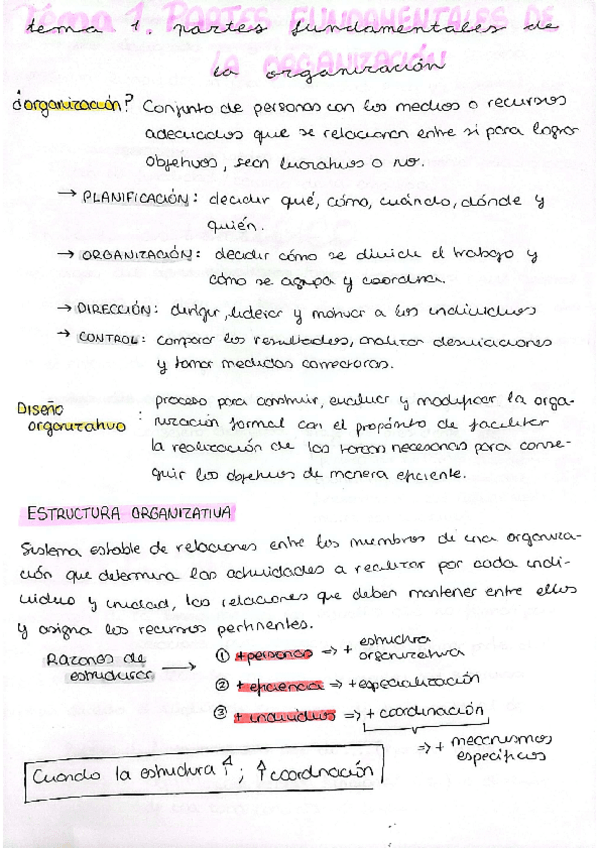 Tema 1. PARTES FUNDAMENTALES DE
LA ORGANIZACIÓN
tema 1. partes fundamentales de
la organización
¿organización? Conjunto de personas con los medios o recursos
adecuados que se relacionan entre si para lograr
objetivos, sean lucrativos o no.
→ PLANIFICACIÓN: decidir qué, cómo, cuándo, dónde y
quién.
→ ORGANIZACIÓN: decidir cómo se divide el trabajo y
cómo se agrupa y coordina.
→ DIRECCIÓN: dirigir, liderar y motivar a los individuos
→ CONTROL: comparar los resultados, analizar desviaciones
y tomar medidas correctoras.
Diseño organizativo : proceso para construir, evaluar y modificar la orga-
nización formal con el propósito de facilitar
la realización de las tareas necesarias para conse-
guir los objetivos de manera eficiente.
ESTRUCTURA ORGANIZATIVA
Sistema estable de relaciones entre los miembros de una organiza-
ción que determina las actividades a realizar por cada indi-
viduo y unidad, las relaciones que deben mantener entre ellos
y asigna los recursos pertinentes.
Razones de estructurar → ① +personas ⇒ + estructura organizativa
② + eficiencia ⇒ +especialización
③ + individuos ⇒ + coordinación
⇒ + mecanismos
específicos
Cuando la estructura ↑; ↑ coordinación